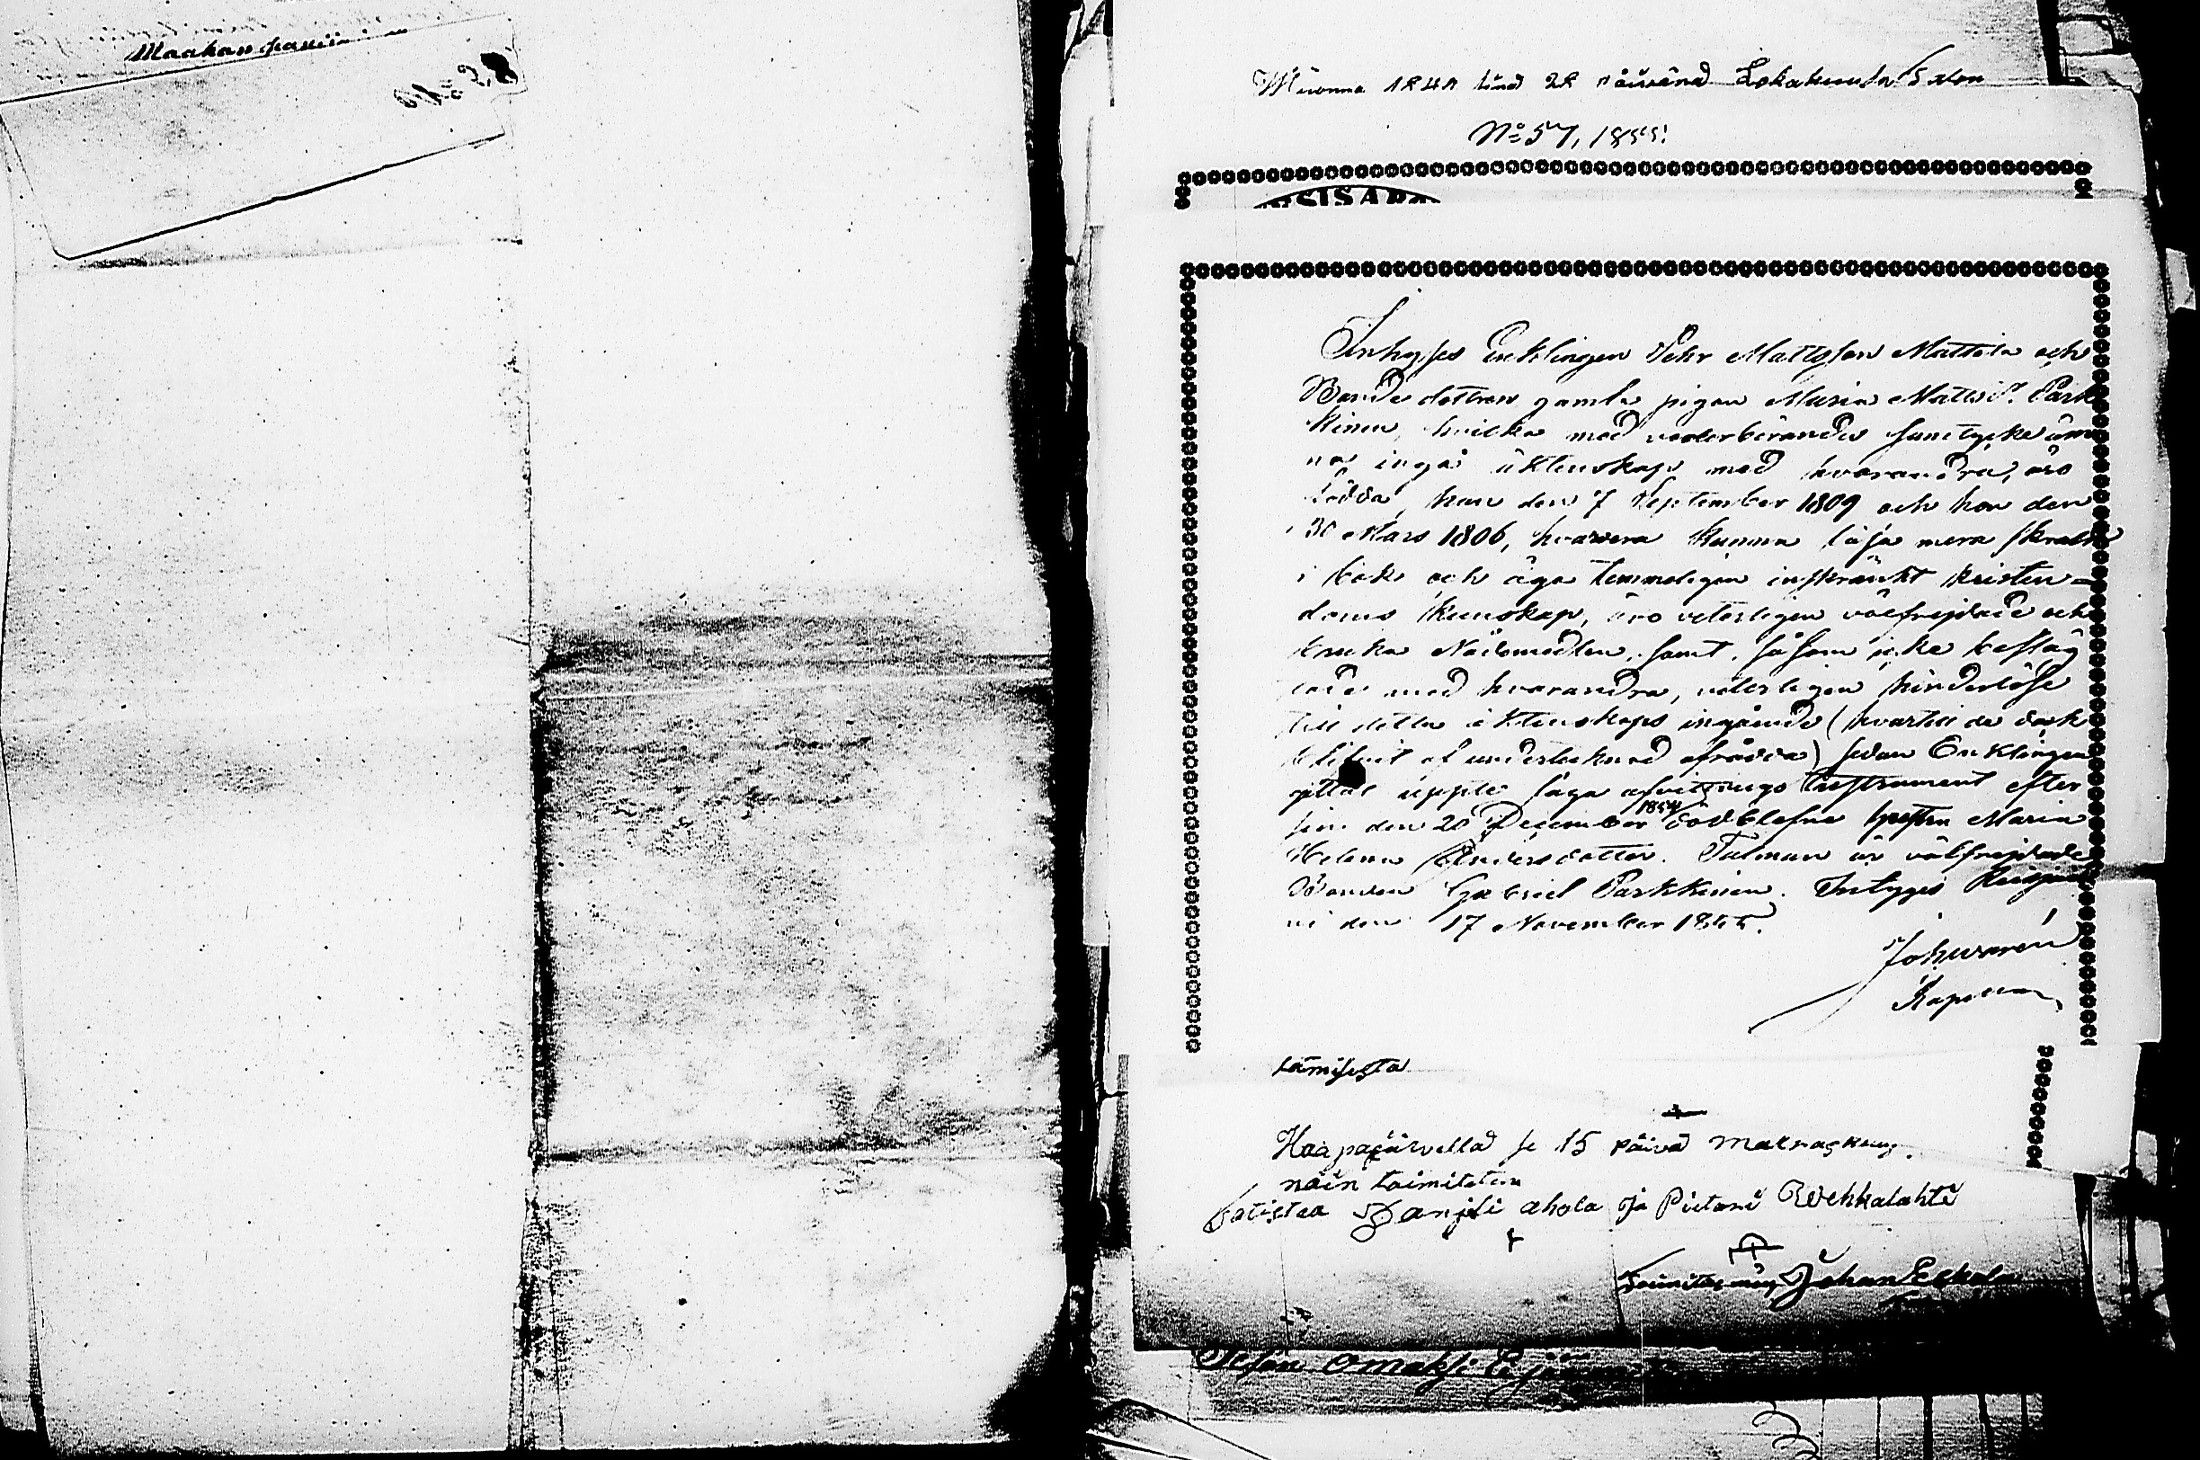 Maakan
Wuonna 1841 sinä 28 päivänä Lokakuuta
No 57, 1855.
SISÄ
Inhyses Enklingen Pehr Mattsson Mattila och
Bonde dottren gamla pigan Maria Mattsd:r Park
kinen, hvilka med vederbörandes samtycke äm
na ingå äktenskap med hvarandra, äro
födda, han den 7 September 1809 och hon den
30 Mars 1806, hvardera kunna läsa
i bok och äga temmeligen inskränkt kristen-
doms kunskap, äro veterligen välfrejdade och
bruka Nådemedlen, samt, såsom icke besläg
tade med hvarandra, veterligen hinderlöse
till detta äktenskaps ingående (hvartill de dock
blifvit af undertecknad afrådda) sedan Enklingen
upptel laga afvittrings Instrument efter
sin den 20 December 1854 dödblefne hustru Maria
Helena Andersdotter. Talman är välfrejdade
Bonden Gabriel Parkkinen. Intygas
ni den 17 November 1855.
Kapellan
tämisestä
Haapajärvellä se 15 päivä marraskuus.
näin toimitetun
Tanjeli ahola ja Pietari Wehkalahti
Johan Eskola
omaksi